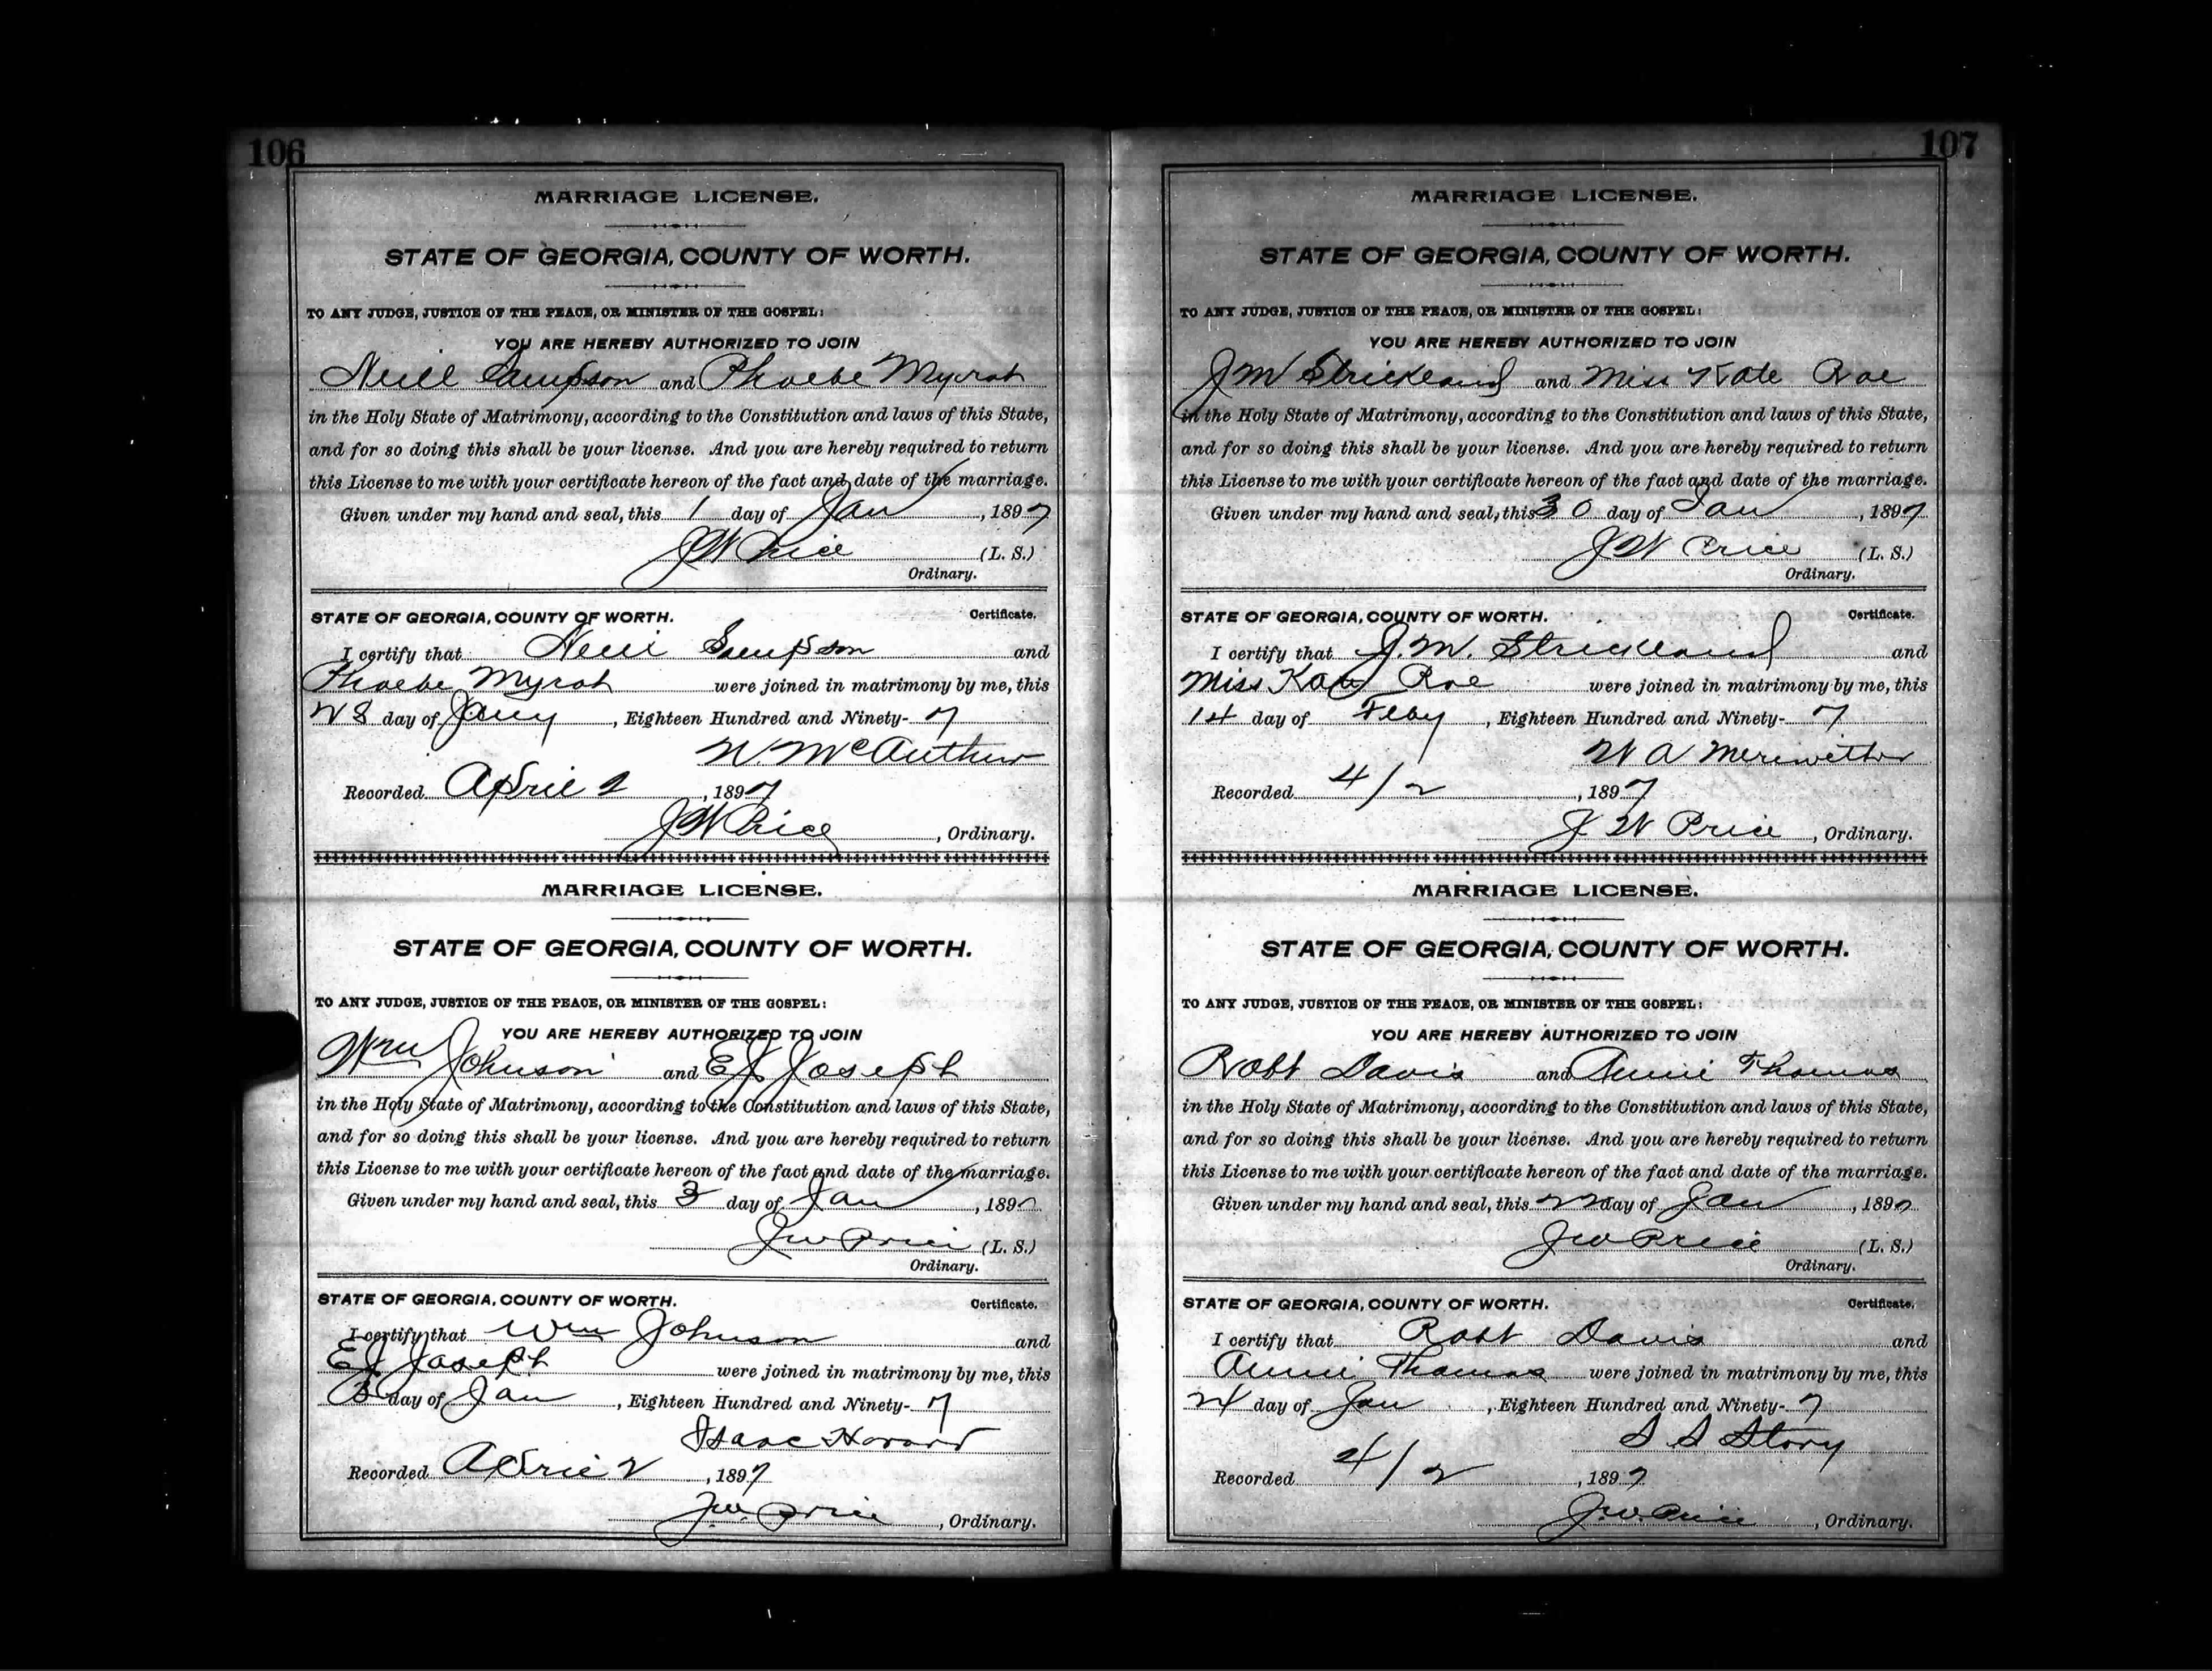 106
MARRIAGE LICENSE.
STATE OF GEORGIA, COUNTY OF WORTH.
TO ANY JUDGE, JUSTICE OF THE PEACE, OR MINISTER OF THE GOSPEL:
YOU ARE HEREBY AUTHORIZED TO JOIN
Neill Sampson and Phoebe Myrat
in the Holy State of Matrimony, according to the Constitution and laws of this State,
and for so doing this shall be your license. And you are hereby required to return
this License to me with your certificate hereon of the fact and date of the marriage.
Given under my hand and seal, this 1 day of Jan, 1897
JW Price (L. S.)
Ordinary.
STATE OF GEORGIA, COUNTY OF WORTH. Certificate.
I certify that Neill Sampson and
Phoebe Myrat were joined in matrimony by me, this
28 day of Jany, Eighteen Hundred and Ninety-7
N. McArthur
Recorded April 2, 1897
JW Price, Ordinary.
MARRIAGE LICENSE.
STATE OF GEORGIA, COUNTY OF WORTH.
TO ANY JUDGE, JUSTICE OF THE PEACE, OR MINISTER OF THE GOSPEL:
YOU ARE HEREBY AUTHORIZED TO JOIN
Wm Johnson and EJ Joseph
in the Holy State of Matrimony, according to the Constitution and laws of this State,
and for so doing this shall be your license. And you are hereby required to return
this License to me with your certificate hereon of the fact and date of the marriage.
Given under my hand and seal, this 3 day of Jan, 1897
JW Price (L. S.)
Ordinary.
STATE OF GEORGIA, COUNTY OF WORTH. Certificate.
I certify that Wm Johnson and
EJ Joseph were joined in matrimony by me, this
3 day of Jan, Eighteen Hundred and Ninety-7
Isaac Havard
Recorded April 2, 1897
J.W. Price, Ordinary.
107
MARRIAGE LICENSE.
STATE OF GEORGIA, COUNTY OF WORTH.
TO ANY JUDGE, JUSTICE OF THE PEACE, OR MINISTER OF THE GOSPEL:
YOU ARE HEREBY AUTHORIZED TO JOIN
JM Strickland and Miss Kate Roe
in the Holy State of Matrimony, according to the Constitution and laws of this State,
and for so doing this shall be your license. And you are hereby required to return
this License to me with your certificate hereon of the fact and date of the marriage.
Given under my hand and seal, this 30 day of Jan, 1897
JW Price (L. S.)
Ordinary.
STATE OF GEORGIA, COUNTY OF WORTH. Certificate.
I certify that J.M. Strickland and
Miss Kate Roe were joined in matrimony by me, this
14 day of Feby, Eighteen Hundred and Ninety-7
W A Meriwether
Recorded 4/2, 1897
JW Price, Ordinary.
MARRIAGE LICENSE.
STATE OF GEORGIA, COUNTY OF WORTH.
TO ANY JUDGE, JUSTICE OF THE PEACE, OR MINISTER OF THE GOSPEL:
YOU ARE HEREBY AUTHORIZED TO JOIN
Robt Davis and Annie Thomas
in the Holy State of Matrimony, according to the Constitution and laws of this State,
and for so doing this shall be your license. And you are hereby required to return
this License to me with your certificate hereon of the fact and date of the marriage.
Given under my hand and seal, this 22 day of Jan, 1897
JW Price (L. S.)
Ordinary.
STATE OF GEORGIA, COUNTY OF WORTH. Certificate.
I certify that Robt Davis and
Annie Thomas were joined in matrimony by me, this
24 day of Jan, Eighteen Hundred and Ninety-7
S S Story
Recorded 4/2, 1897
J.W. Price, Ordinary.